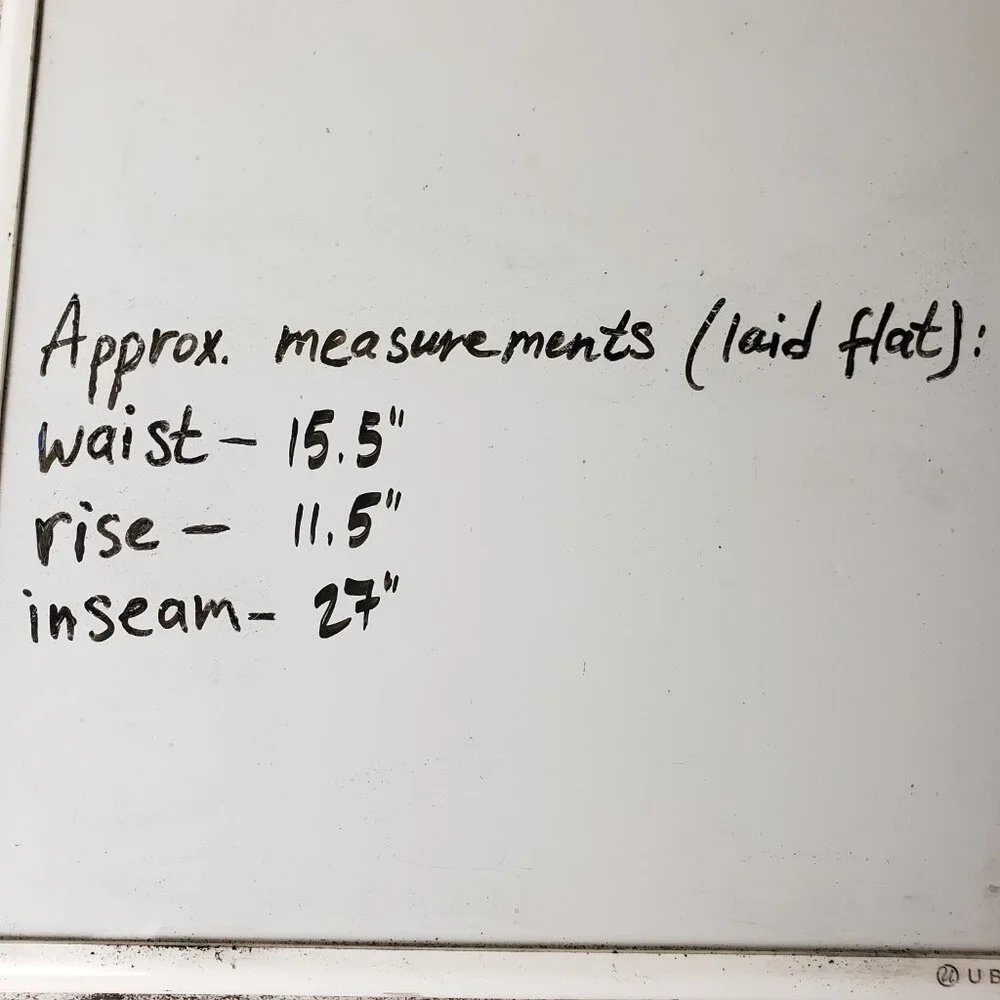 Approx. measurements (laid flat):
waist - 15.5"
rise - 11.5"
inseam - 27"